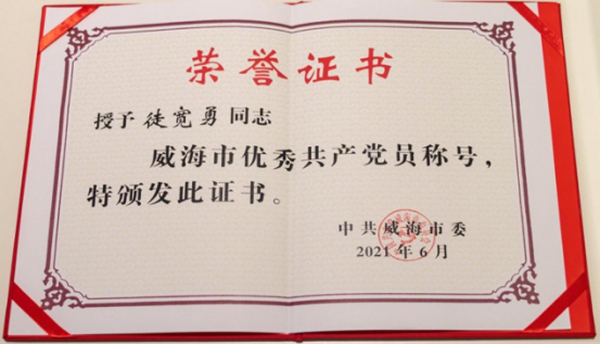 荣誉证书
授予徒宽勇同志
威海市优秀共产党员称号，
特颁发此证书。
中共威海市委
2021年6月